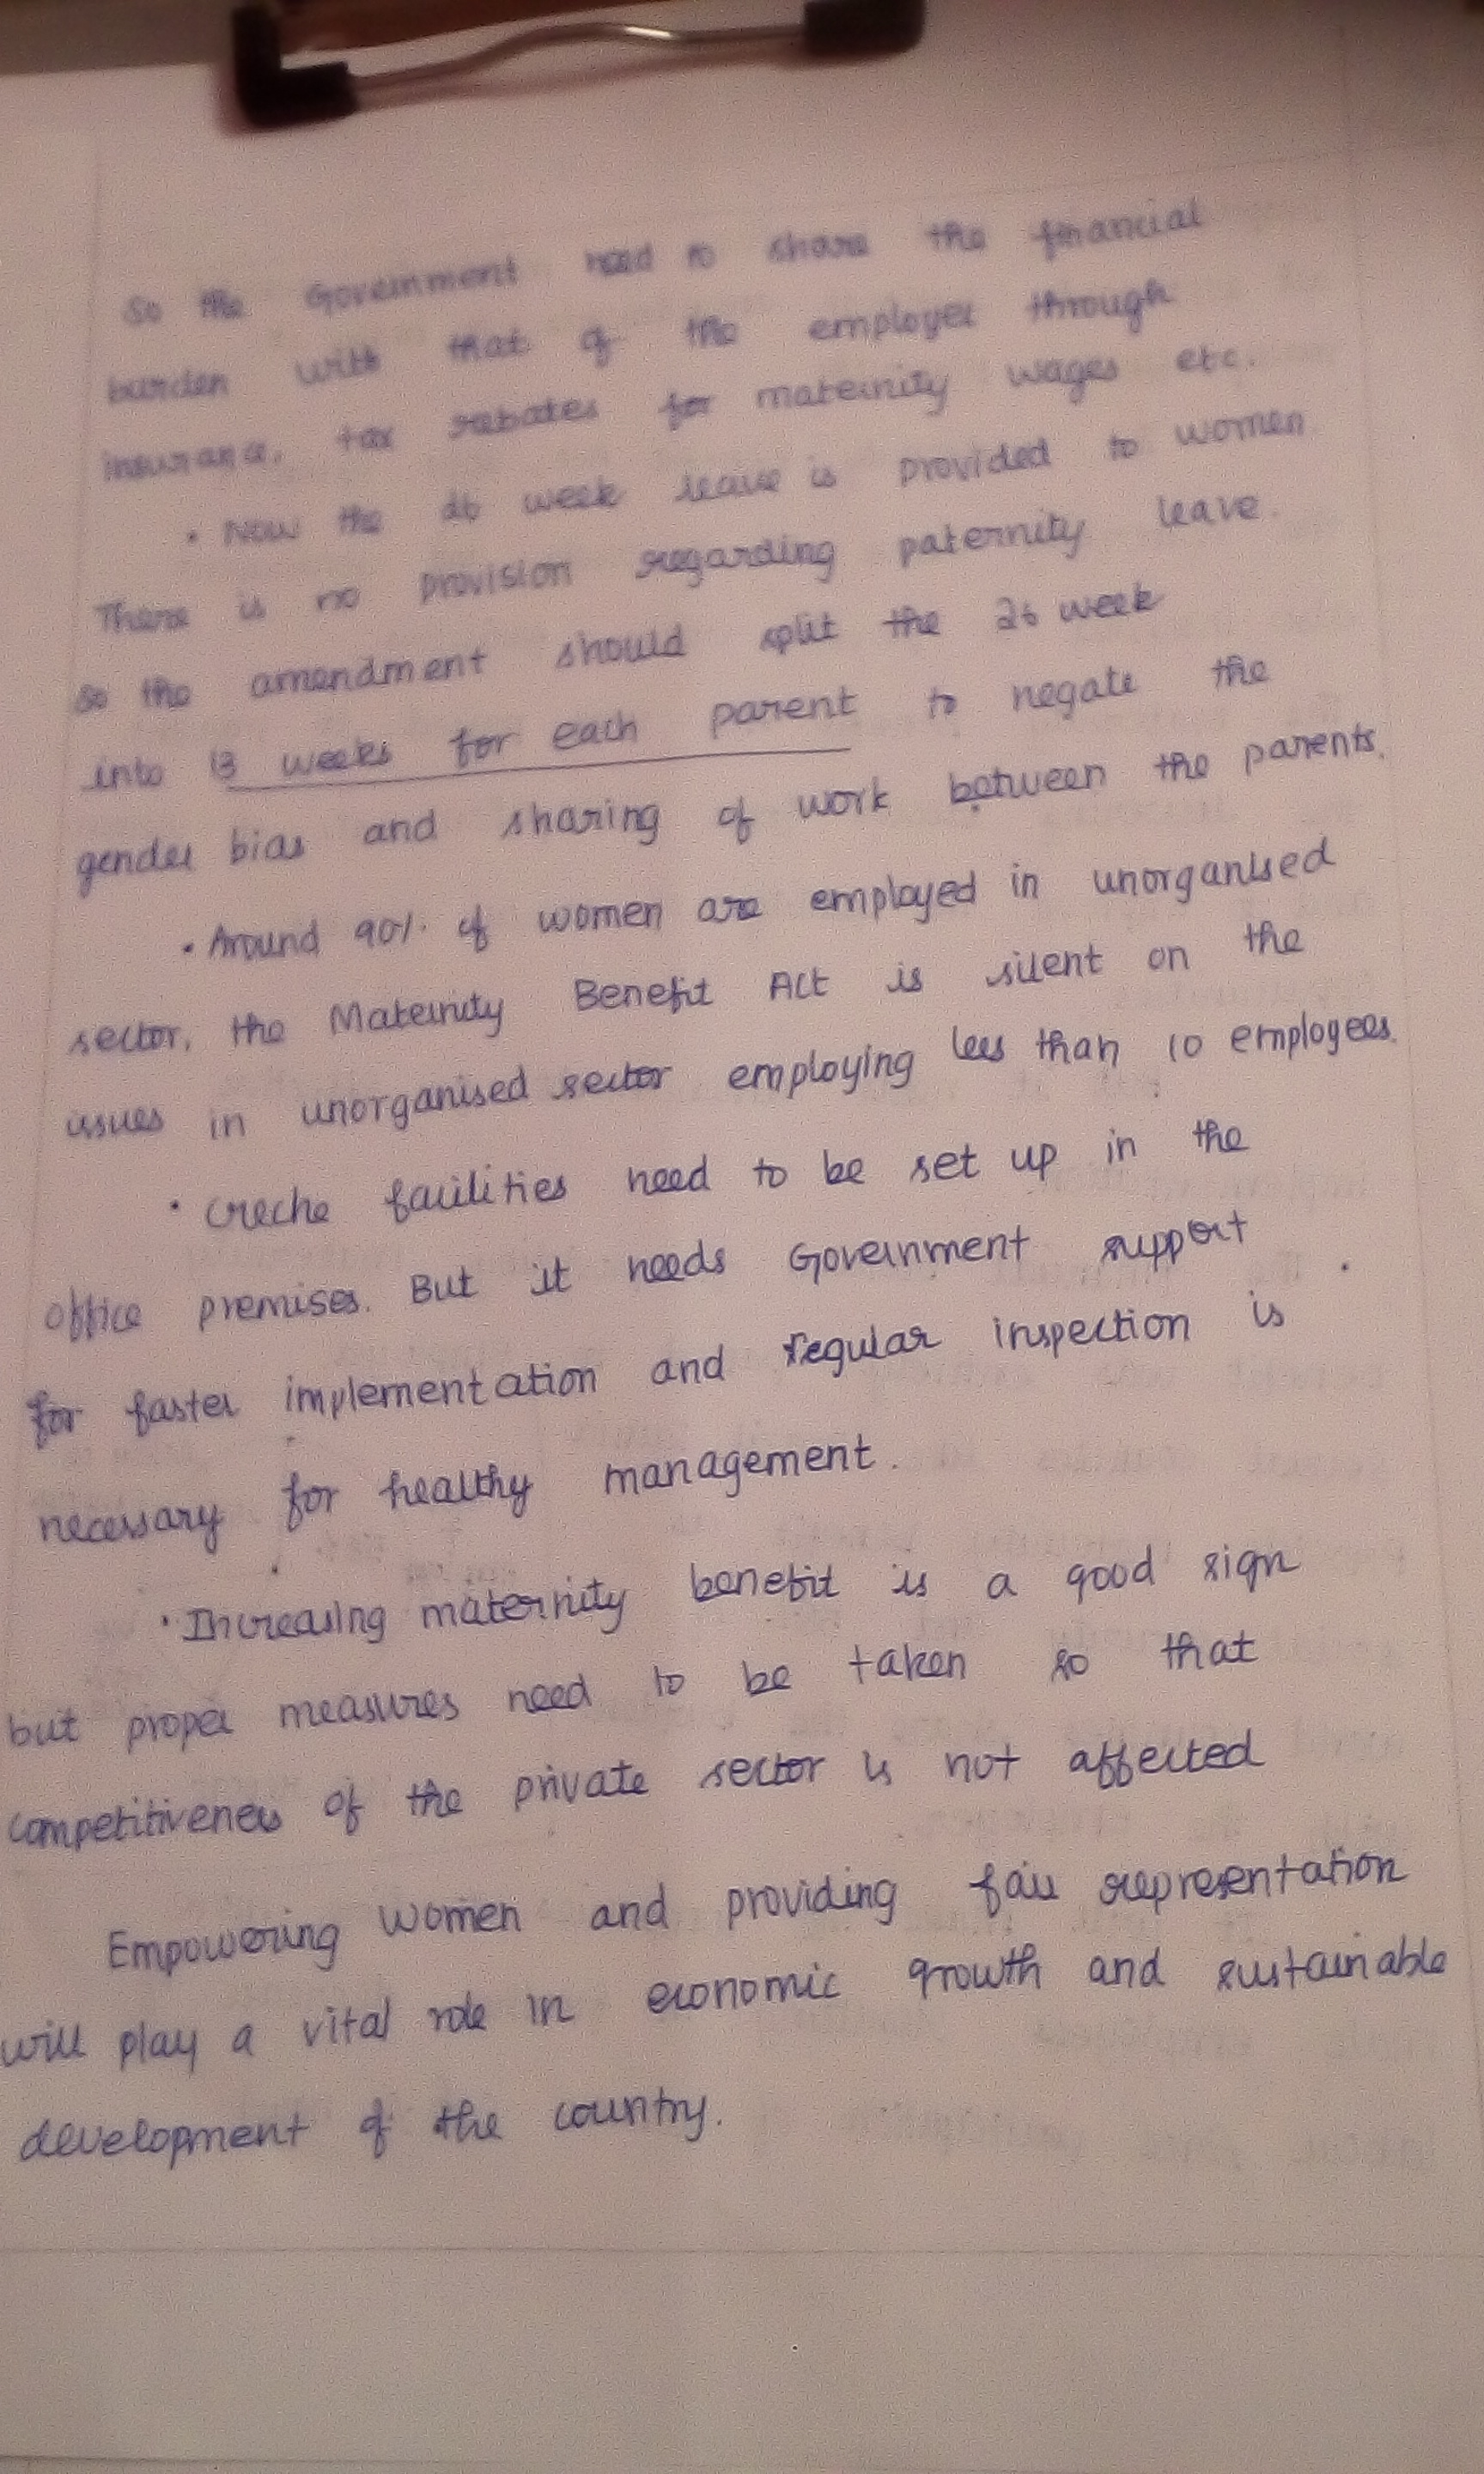 So the Government need to share the financial
burden with that of the employer through
insurance, tax rebates for maternity wages etc.
• Now the 26 week leave is provided to women
There is no provision regarding paternity leave.
so the amendment should split the 26 week
into 13 weeks for each parent to negate the
gender bias and sharing of work between the parents.
• Around 90% of women are employed in unorganised
sector, the Maternity Benefit Act is silent on the
issues in unorganised sector employing less than 10 employees.
• Creche facilities need to be set up in the
office premises. But it needs Government support
for faster implementation and regular inspection is
necessary for healthy management.
• Increasing maternity benefit is a good sign
but proper measures need to be taken so that
competitiveness of the private sector is not affected
Empowering women and providing fair representation
will play a vital role in economic growth and sustainable
development of the country.